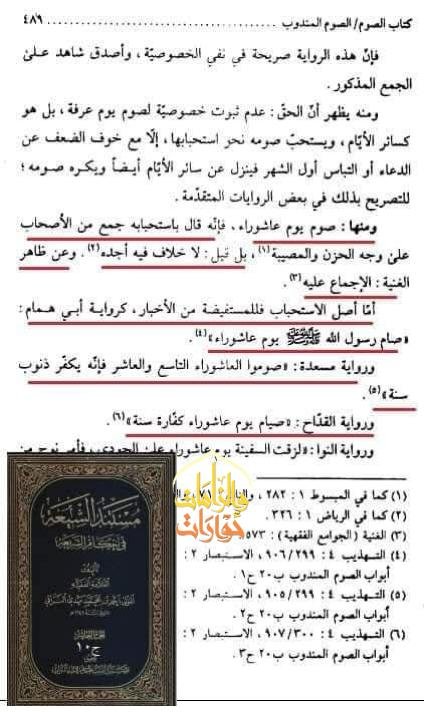 كتاب الصوم/ الصوم المندوب ........................................ ٤٨٩
فإنّ هذه الرواية صريحة في نفي الخصوصيّة ، وأصدق شاهد علىٰ
الجمع المذكور .
ومنه يظهر أنّ الحقّ : عدم ثبوت خصوصيّة لصوم يوم عرفة ، بل هو
كسائر الأيّام ، ويستحبّ صومه نحو استحبابها ، إلّا مع خوف الضعف عن
الدعاء أو التباس أول الشهر فينزل عن سائر الأيّام أيضاً ويكره صومه ؛
للتصريح بذلك في بعض الروايات المتقدّمة .
ومنها : صوم يوم عاشوراء ، فإنّه قال باستحبابه جمع من الأصحاب
علىٰ وجه الحزن والمصيبة (١) ، بل قيل : لا خلاف فيه أجده (٢) . وعن ظاهر
الغنية : الإجماع عليه (٣) .
أمّا أصل الاستحباب فللمستفيضة من الأخبار ، كرواية أبي همام :
«صام رسول الله ﷺ يوم عاشوراء» (٤) .
ورواية مسعدة : «صوموا العاشوراء التاسع والعاشر فإنّه يكفّر ذنوب
سنة» (٥) .
ورواية القدّاح : «صيام يوم عاشوراء كفّارة سنة» (٦) .
ورواية النوا : «لزقت السفينة يوم عاشوراء علىٰ الجودي ، فأمر نوح من
(١) كما في المبسوط ١ : ٢٨٢ ،
(٢) كما في الرياض ١ : ٣٢٦ .
(٣) الغنية (الجوامع الفقهية) : ٥٧٣ .
(٤) التهذيب ٤ : ٢٩٩ / ٩٠٦ ، الاستبصار ٢ :
أبواب الصوم المندوب ب ٢٠ ح ١ .
(٥) التهذيب ٤ : ٢٩٩ / ٩٠٥ ، الاستبصار ٢ :
أبواب الصوم المندوب ب ٢٠ ح ٢ .
(٦) التهذيب ٤ : ٣٠٠ / ٩٠٧ ، الاستبصار ٢ :
أبواب الصوم المندوب ب ٢٠ ح ٣ .
مستند الشيعة
في أحكام الشريعة
ج ١٠
والزامات
حوارات